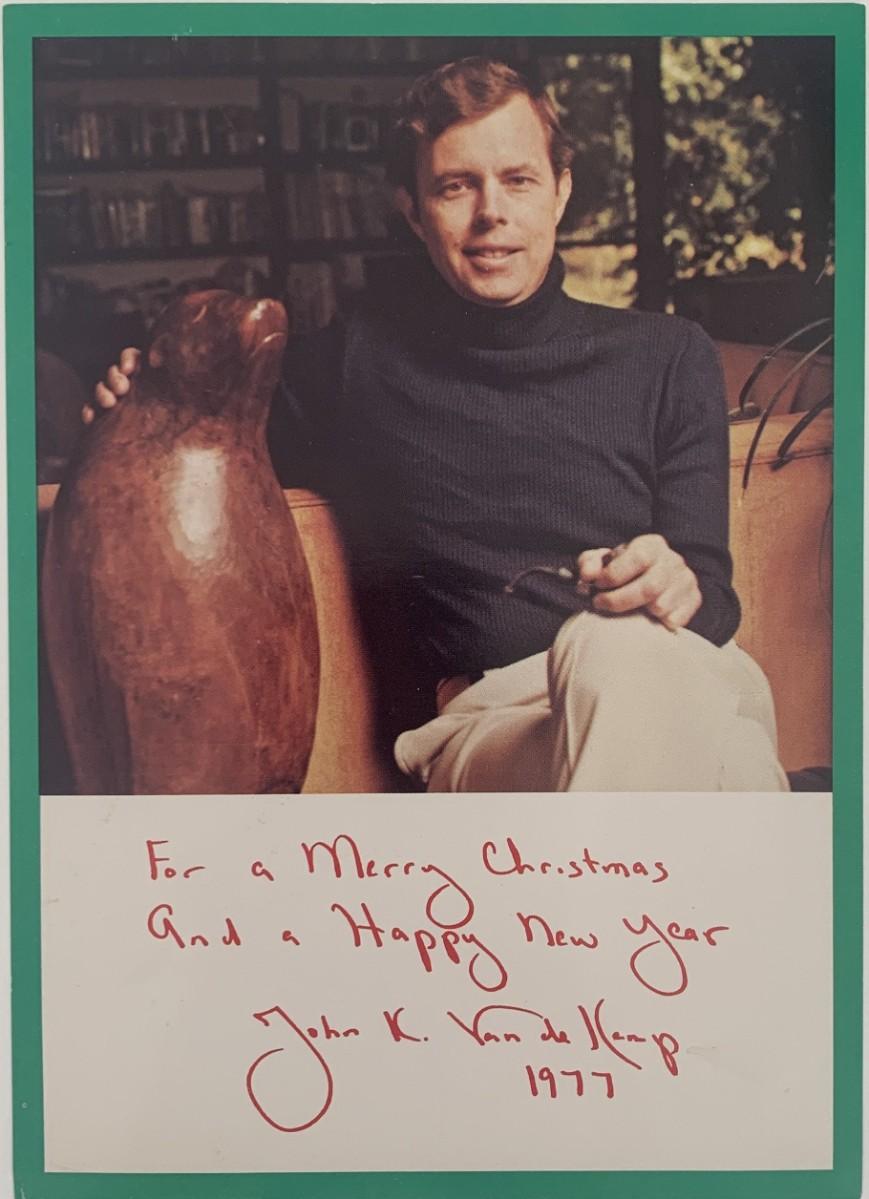 For a Merry Christmas
And a Happy New Year
John K. Van de Kamp
1977